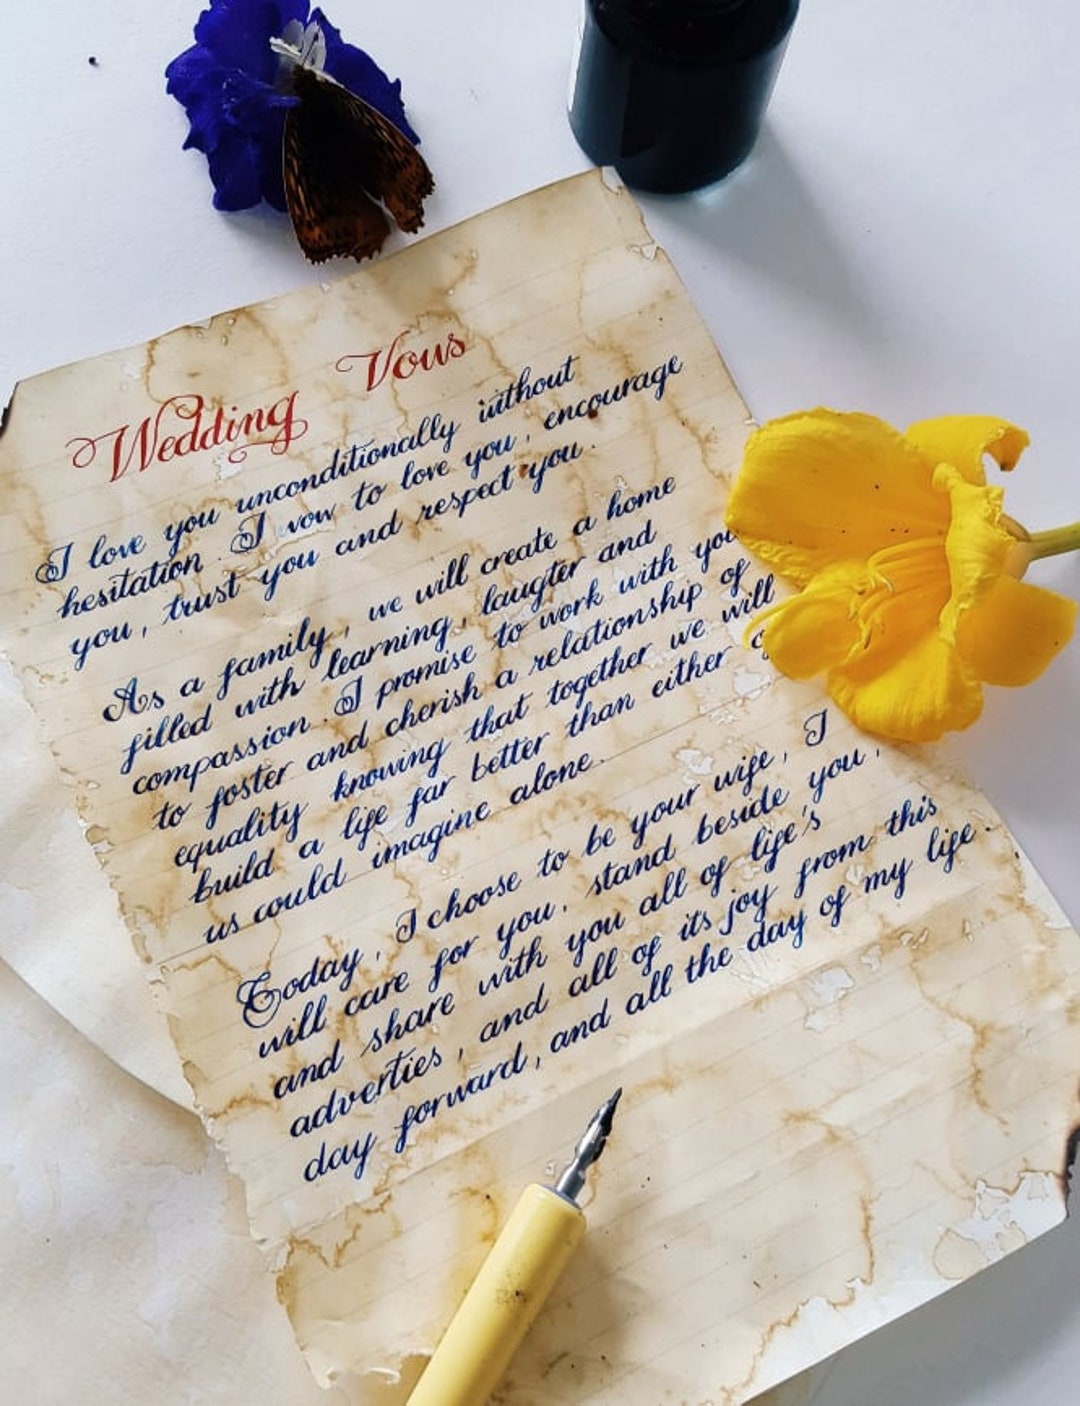 Wedding Vous
I love you unconditionally without
hesitation. I vow to love you, encourage
you, trust you and respect you.
As a family, we will create a home
filled with learning, laugter and
compassion. I promise to work with you
to foster and cherish a relationship of
equality knowing that together we will
build a life far better than either
us could imagine alone.
Today, I choose to be your wife, I
will care for you, stand beside you,
and share with you all of life's
adverties, and all of its joy from this
day forward, and all the day of my life.